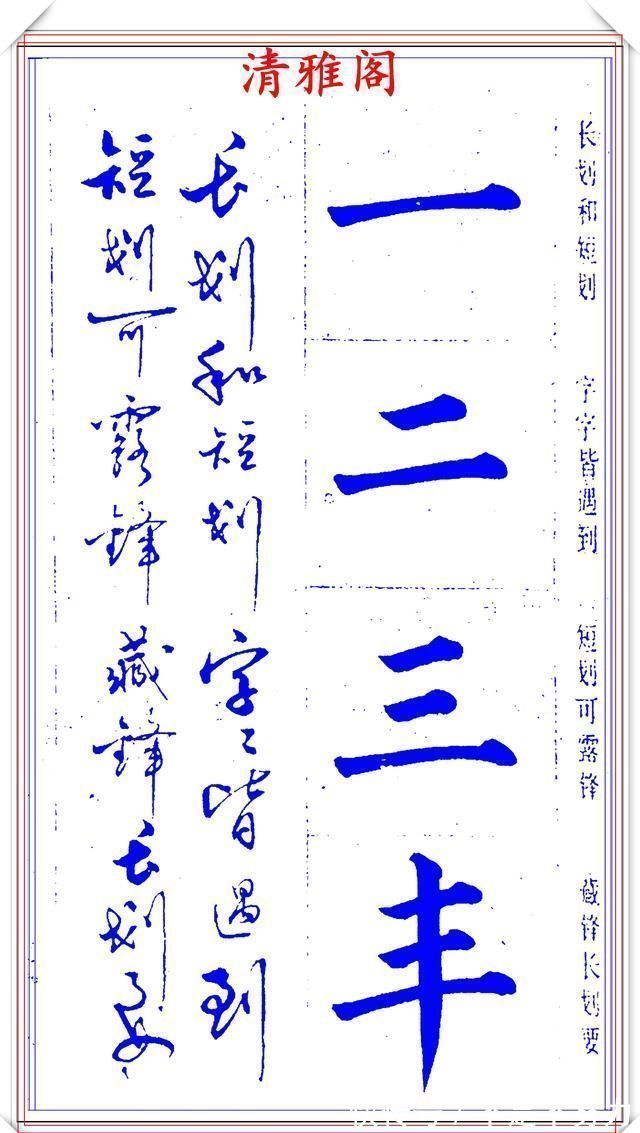 清雅阁
长划和短划 字字皆遇到 短划可露锋 藏锋长划要
一
二
三
丰
长划和短划字〻皆遇到
短划可露锋藏锋长划要